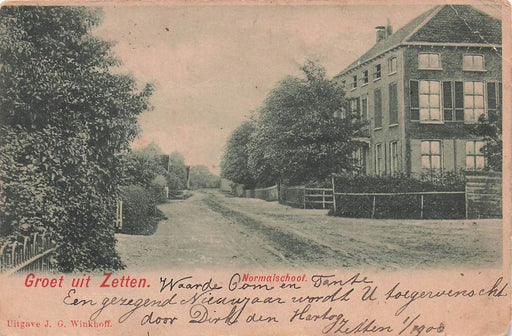 Normalschool.
Groet uit Zetten. Waarde Oom en Tante
Een gezegend Nieuwjaar wordt U toegewenscht
door Dirk den Hartog
Uitgave J. G. Winkhoff. Zetten 1/1900